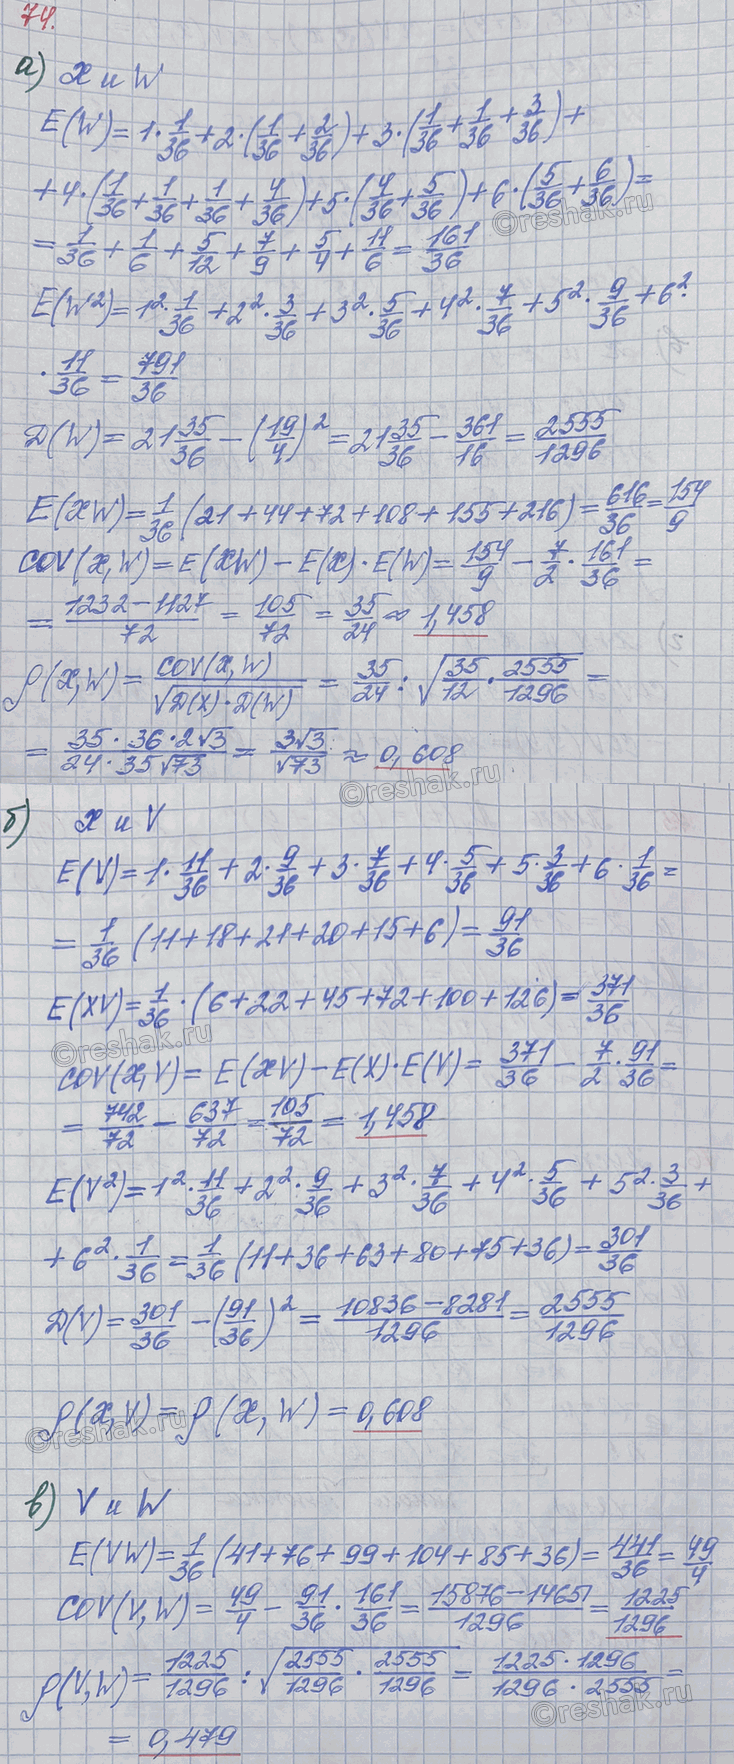 74.
а) X и W
E(W)=1·1/36+2·(1/36+2/36)+3·(1/36+1/36+3/36)+
+4·(1/36+1/36+1/36+4/36)+5·(4/36+5/36)+6·(5/36+6/36)=
=1/36+1/6+5/12+7/9+5/4+11/6=161/36
E(W²)=1²·1/36+2²·3/36+3²·5/36+4²·7/36+5²·9/36+6²·
·11/36=791/36
D(W)=21 35/36-(19/4)²=21 35/36-361/16=2555/1296
E(XW)=1/36(21+44+72+108+155+216)=616/36=154/9
COV(X,W)=E(XW)-E(X)·E(W)=154/9-7/2·161/36=
=(1232-1127)/72=105/72=35/24≈1,458
ρ(X,W)=COV(X,W)/√(D(X)·D(W))=35/24:√(35/12·2555/1296)=
=(35·36·2√3)/(24·35√73)=3√3/√73≈0,608
б) X и V
E(V)=1·11/36+2·9/36+3·7/36+4·5/36+5·3/36+6·1/36=
=1/36(11+18+21+20+15+6)=91/36
E(XV)=1/36·(6+22+45+72+100+126)=371/36
COV(X,V)=E(XV)-E(X)·E(V)=371/36-7/2·91/36=
=742/72-637/72=105/72=1,458
E(V²)=1²·11/36+2²·9/36+3²·7/36+4²·5/36+5²·3/36+
+6²·1/36=1/36(11+36+63+80+75+36)=301/36
D(V)=301/36-(91/36)²=(10836-8281)/1296=2555/1296
ρ(X,V)=ρ(X,W)=0,608
в) V и W
E(VW)=1/36(41+76+99+104+85+36)=441/36=49/4
COV(V,W)=49/4-91/36·161/36=(15876-14651)/1296=1225/1296
ρ(V,W)=1225/1296:√(2555/1296·2555/1296)=(1225·1296)/(1296·2555)=
=0,479
©reshak.ru
©reshak.ru
©reshak.ru
©reshak.ru
©reshak.ru